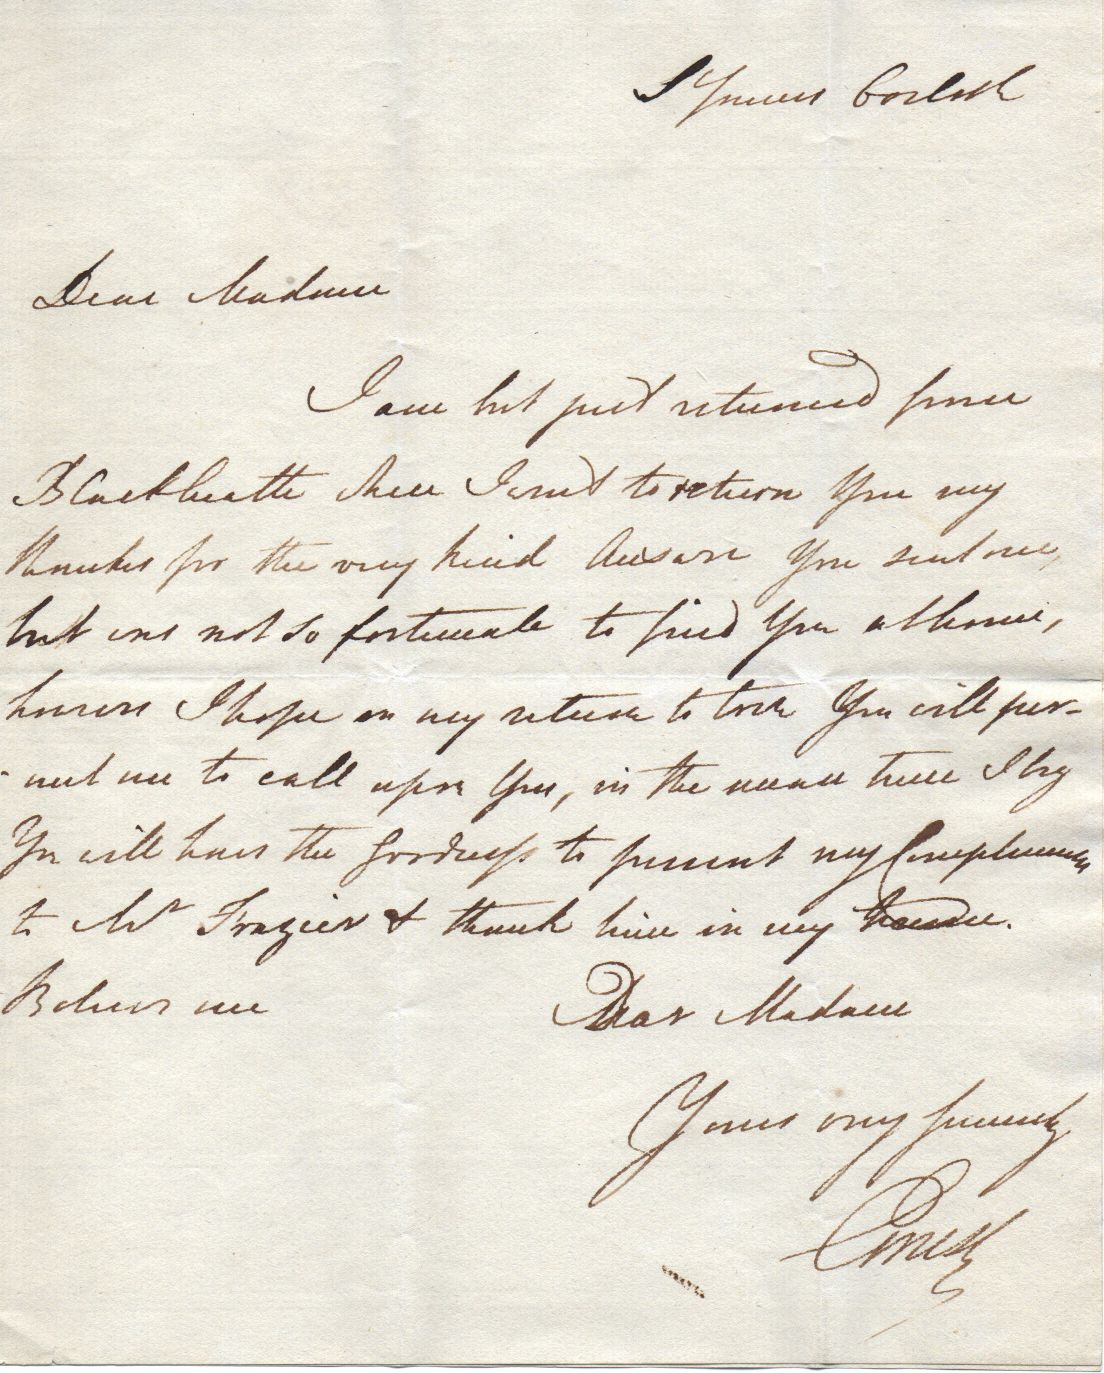 St James's
Dear Madame
I am but just returned from
Blackheath where I went to return You my
thanks for the very kind Ansure You sent me,
but was not so fortunate to find You at home,
however I hope on my return to town You will per-
-mit me to call upon You, in the mean time I beg
You will have the Goodness to present my Compliments
to Mr Frazier & thank him in my name.
Believe me Dear Madame
Yours very sincerely
Ernest